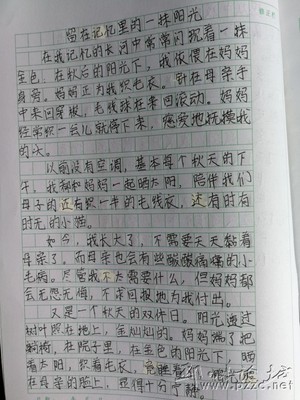 留在记忆里的一抹阳光
在我记忆的长河中常常闪现着一抹
金色。在秋后的阳光下，我依偎在妈妈
身旁。妈妈正为我织毛衣。针在母亲手
中来回穿梭，毛线球在来回滚动。妈妈
经常织一会儿就停下来，慈爱地抚摸我
的头。
以前没有空调，基本每个秋天的下
午，我都和妈妈一起晒太阳，陪伴我们
母子的还有织一半的毛线衣，还有时有
时无的小猫。
如今，我长大了，不需要天天黏着
母亲了。而母亲也会有些酸酸痛痛的小
毛病。尽管我不太需要什么，但妈妈都
会无怨无悔，不求回报地为我付出。
又是一个秋天的双休日。阳光透过
树叶照在地上，金灿灿的。妈妈端了把
躺椅，在院子里，在金色的阳光下，晒
着太阳，织着毛衣，睡着
在母亲的脸上，显得十分宁静。
www.pzzc.net